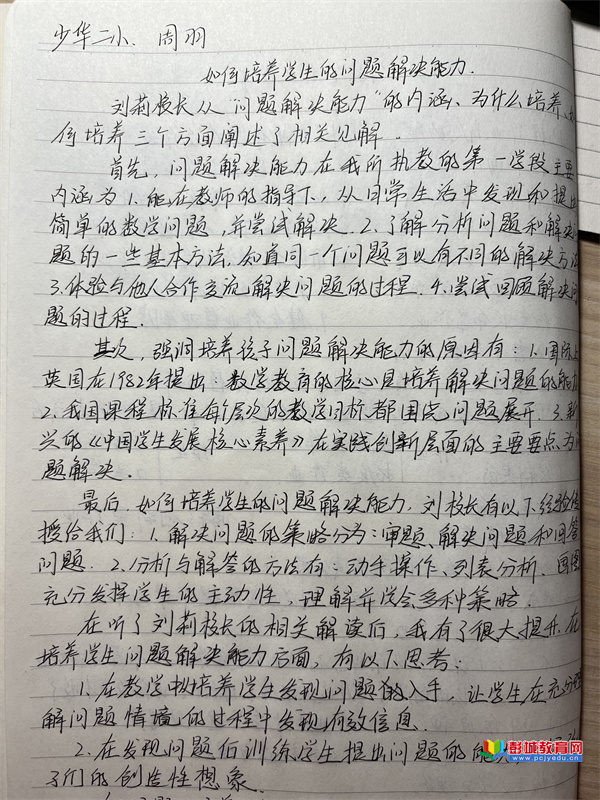 少华二小 周羽
如何培养学生的问题解决能力.
刘莉校长从"问题解决能力"的内涵、为什么培养、
何培养三个方面阐述了相关见解.
首先,问题解决能力在我所执教的第一学段主要
内涵为1.能在教师的指导下,从日常生活中发现和提出
简单的数学问题,并尝试解决.2.了解分析问题和解决
题的一些基本方法,知道同一个问题可以有不同的解决方法
3.体验与他人合作交流解决问题的过程.4.尝试回顾解决问
题的过程.
其次,强调培养孩子问题解决能力的原因有:1.国际上
英国在1982年提出:数学教育的核心是培养解决问题的能力
2.我国课程标准每个层次的教学目标都围绕问题展开.3.新
兴的《中国学生发展核心素养》在实践创新层面的主要要点为问
题解决.
最后,如何培养学生的问题解决能力,刘校长有以下经验传
授给我们:1.解决问题的策略分为:审题、解决问题和回答
问题.2.分析与解答的方法有:动手操作、列表分析、画图
充分发挥学生的主动性,理解并学会多种策略.
在听了刘莉校长的相关解读后,我有了很大提升.在
培养学生问题解决能力方面,有以下思考:
1.在教学中从培养学生发现问题的入手,让学生在充分理
解问题情境的过程中发现有效信息.
2.在发现问题后训练学生提出问题的
子们的创造性想象.
彭城教育网
www.pcjyedu.cn